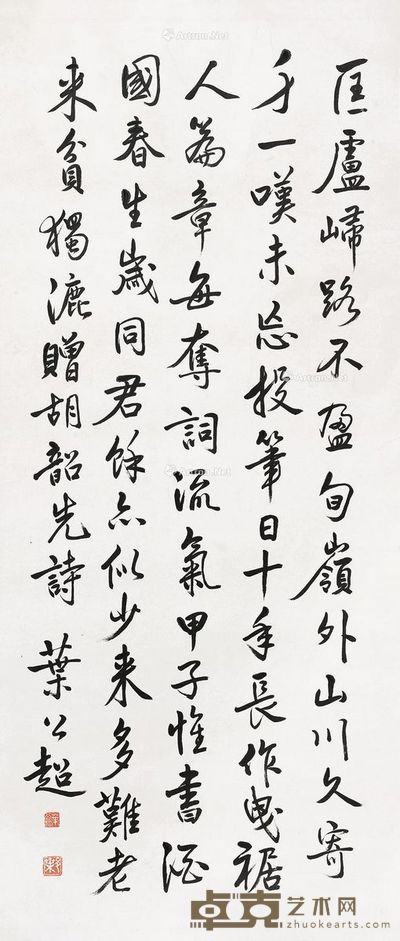 匡廬歸路不盈旬嶺外山川久寄
身一嘆未忘投筆日十年長作曳裾
人篇章每奪詞流氣甲子惟書酒
國春生歲同君餘亦似少来多難老
来貧獨漉贈胡韶先詩 葉公超
Artron.Net
卓克艺术网
zhuokearts.com